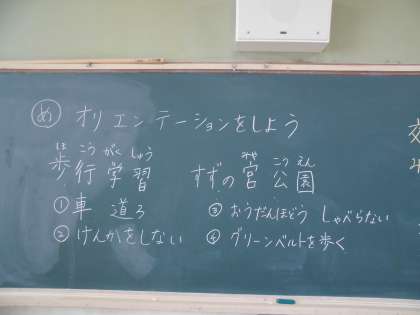 め オリエンテーションをしよう
ほ こう がく しゅう みや こう えん
歩行学習 すずの宮 公園
①車 道ろ ③おうだんほどう しゃべらない
②けんかをしない ④グリーンベルトを歩く